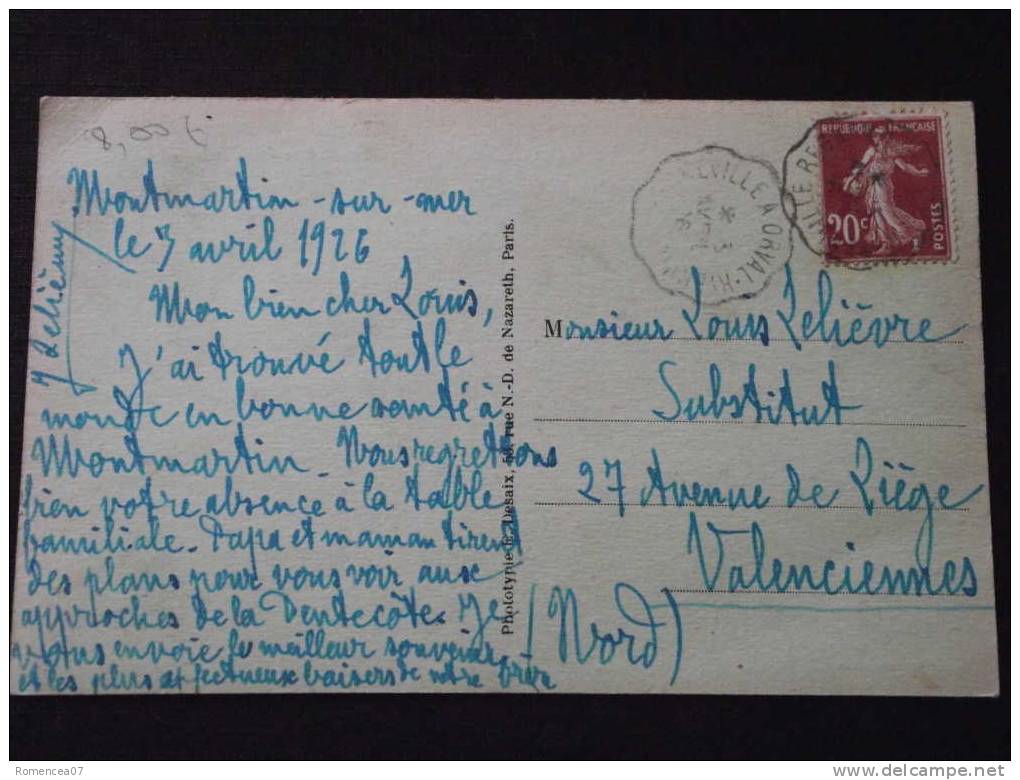 8,00 €
Montmartin-sur-mer
le 3 avril 1926
Mon bien cher Louis,
J'ai trouvé tout le
monde en bonne santé à
Montmartin. Nous regrettons
bien votre absence à la table
familiale. Papa et maman tirent
des plans pour vous voir aux
approches de la Pentecôte. Je
vous envoie le meilleur souvenir
et les plus affectueux baisers de votre frère
Lelièvre
Phototypie Desaix, rue N.-D. de Nazareth, Paris.
ORVAL
REPUBLIQUE FRANÇAISE
20c
POSTES
Monsieur Louis Lelièvre
Substitut
27 Avenue de Liège
Valenciennes
(Nord)
Romencea07
www.delcampe.net